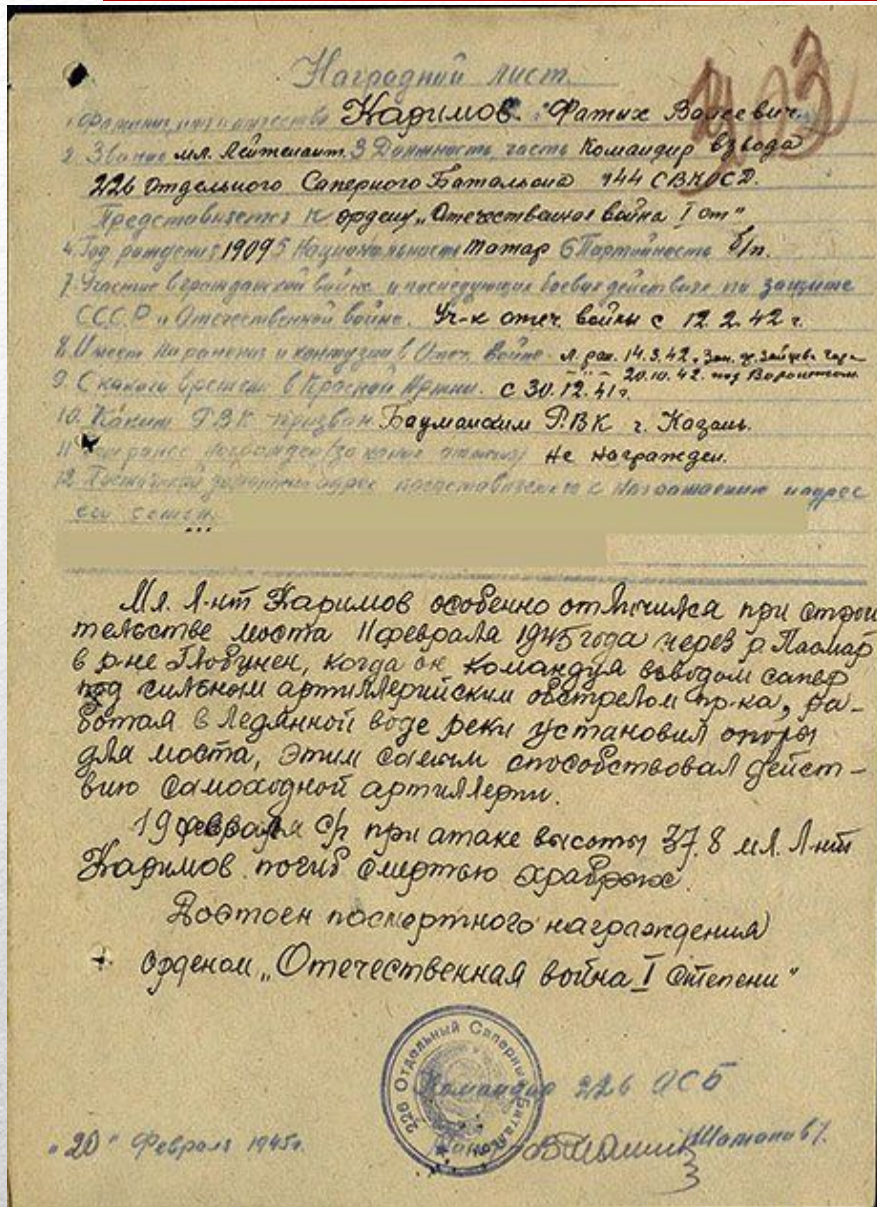 403
Наградной лист
1. Фамилия, имя и отчество Каримов Фатых Валеевич
2. Звание мл. Лейтенант. 3 Должность, часть Командир взвода
226 Отдельного Саперного Баталиона 144 СВКОСД.
Представляется к ордену „Отечественная война I ст"
4. Год рождения 1909 5 Национальность татар 6 Партийность б/п.
7. Участие в гражданской войне и последующих боевых действиях по защите
СССР и Отечественной войне. Уч-к отеч. войны с 12.2.42 г.
8. Имеет ли ранения и контузии в Отеч. Войне. л. ран. 14.3.42,
20.10.42. под Воронежом
9. С какого времени в Красной Армии. с 30.12.41 г.
10. Каким РВК призван Бауманским РВК г. Казань.
11 Чем ранее награжден (за какие отличия) не награжден.
12. Постоянный домашний адрес представляемого к награждению и адрес
его семьи
Мл. Л-нт Каримов особенно отличился при строи
тельстве моста 11 февраля 1945 года через р. Пасмар
в р-не Глобунен, когда он командуя взводом сапер
под сильном артиллерийским обстрелом пр-ка, ра-
ботая в ледянной воде реки установил опоры
для моста, этим самым способствовал дейст-
вию самоходной артиллерии.
19 февраля с/г при атаке высоты 37.8 мл. Л-нт
Каримов погиб смертью храброго.
Достоен посмертного награждения
орденом „Отечественная война I степени"
226 Отдельный Саперный Баталион
Командир 226 ОСБ
Шатапов
"20" Февраля 1945г.